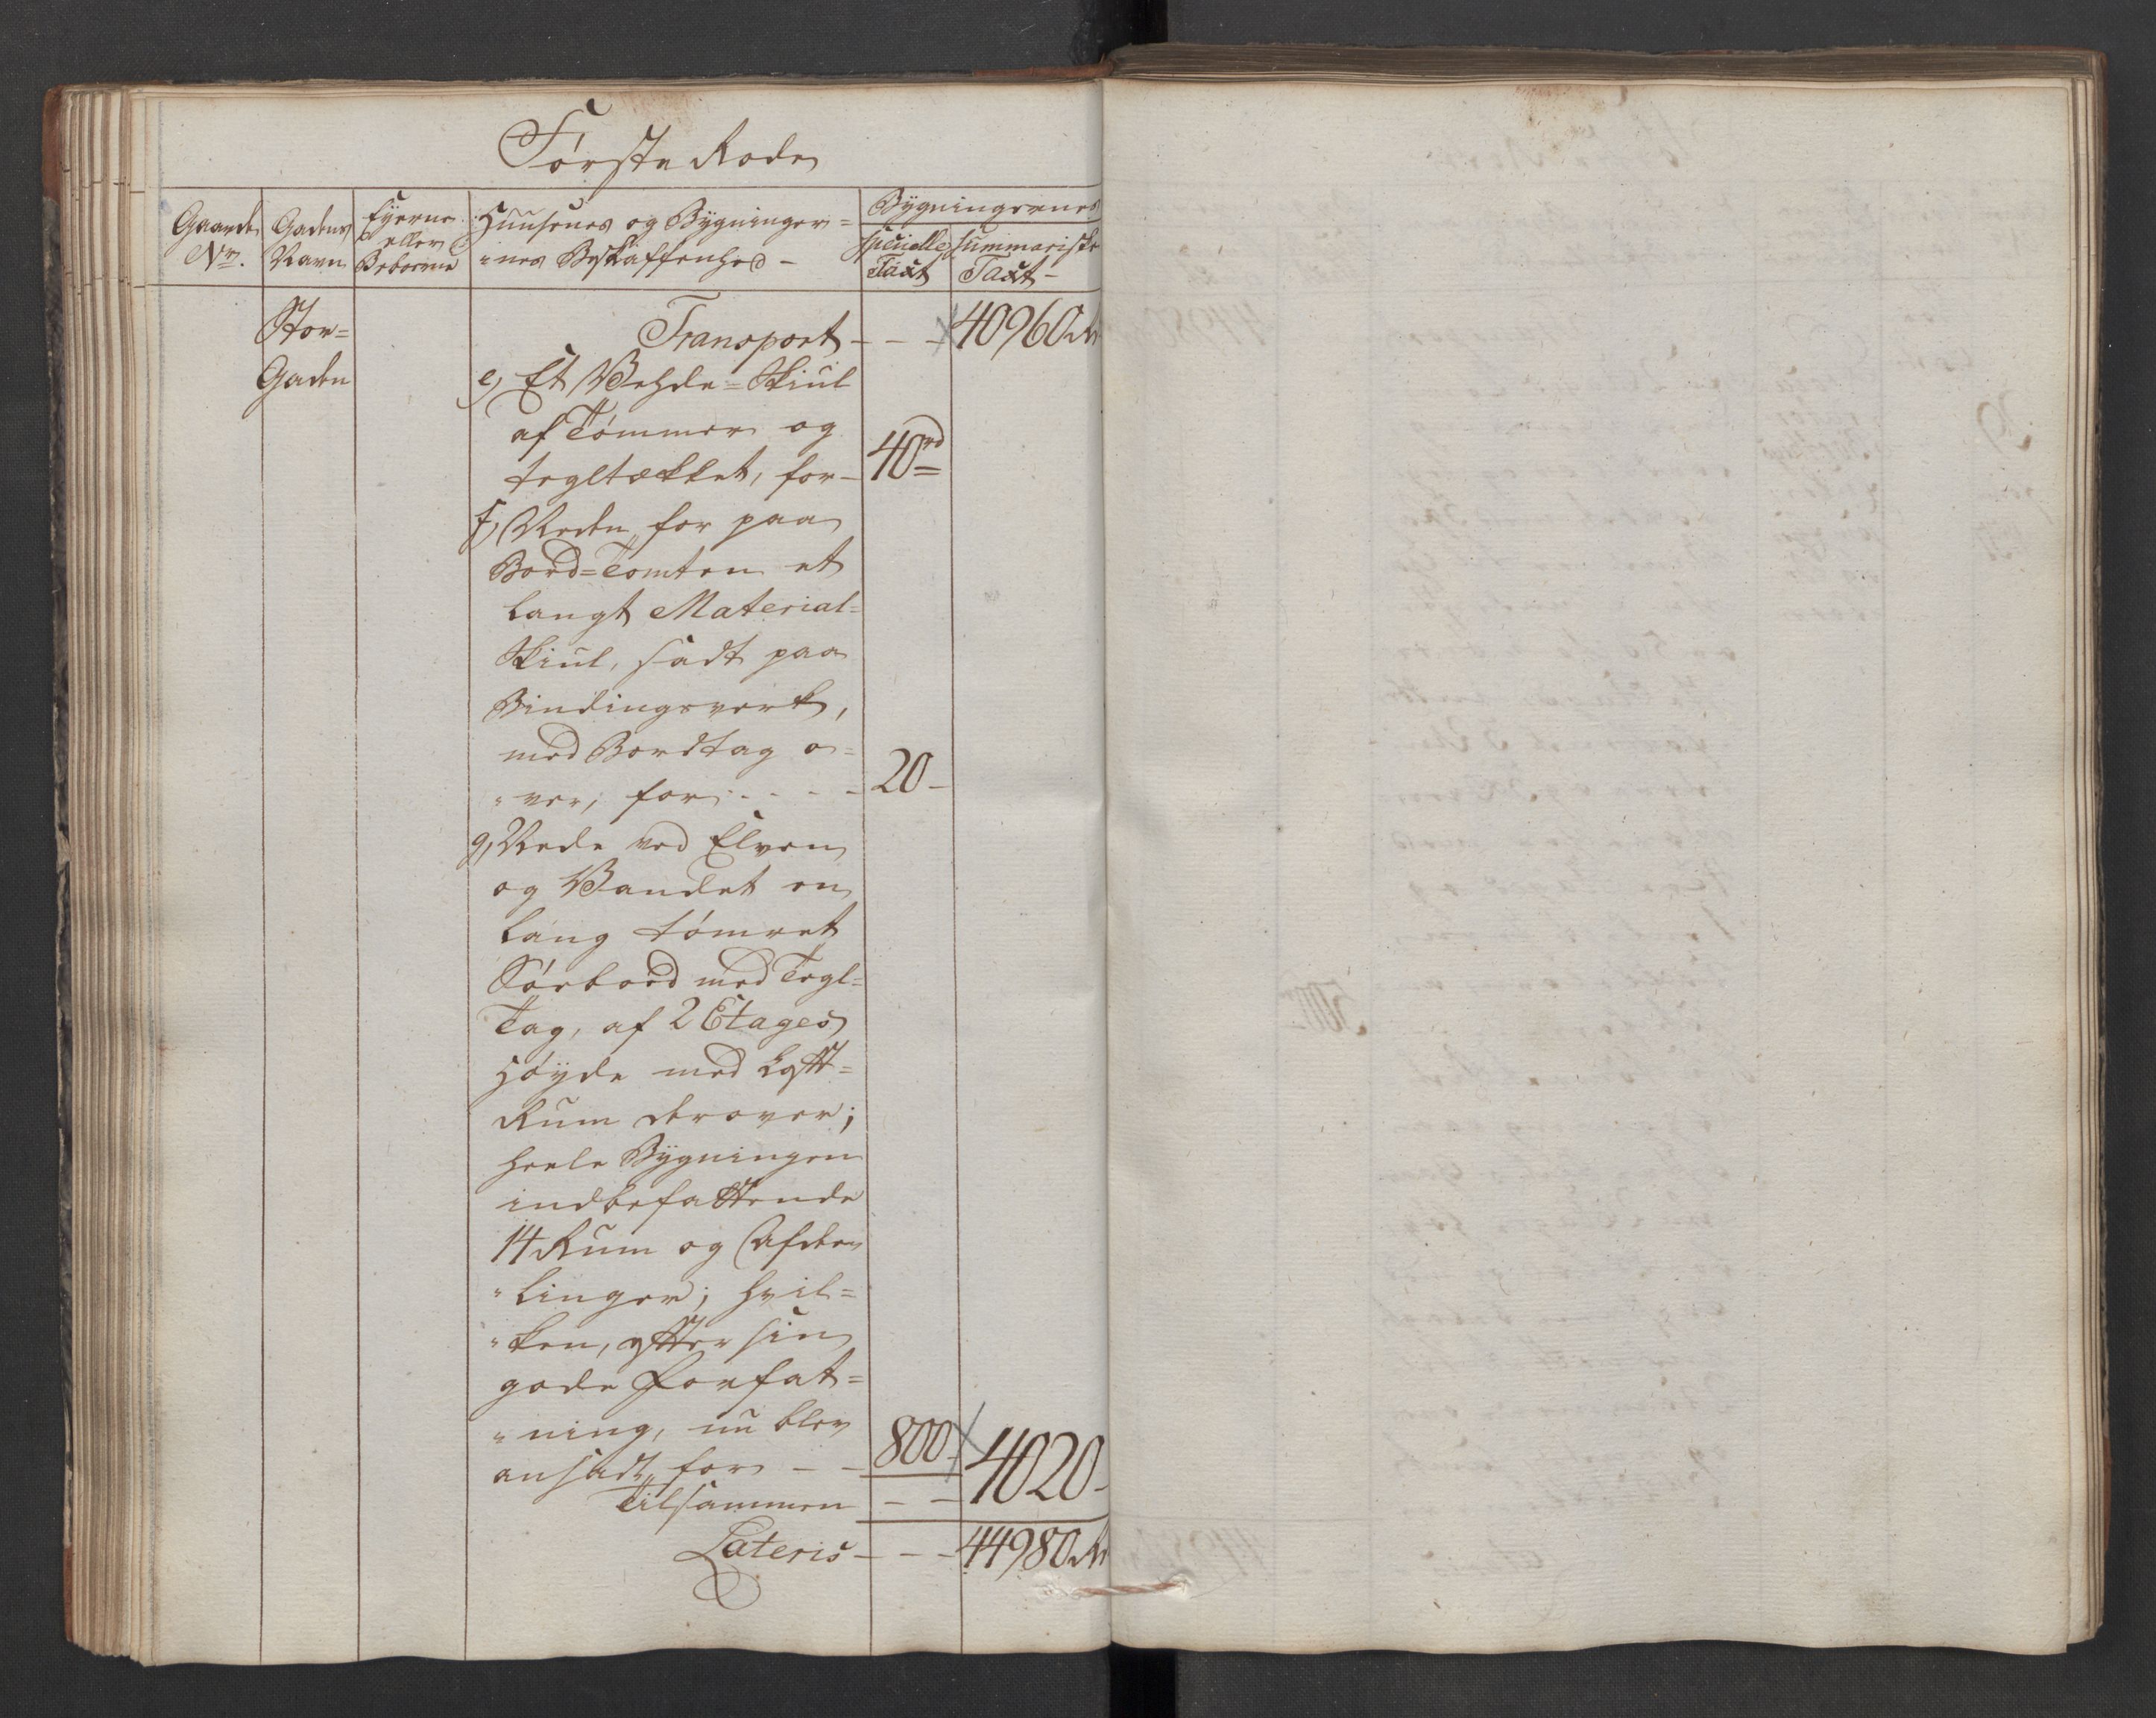 Første Rode
Gaarde Nr.
Gadens Navn
Eyerne eller Beboerne
Huusenes og Bygninger=
=nes Beskaffenhed -
Bygningernes
specielle Taxt
summariske Taxt -
Stor=
Gaden
Transport - - - 40960 Rd
e, Et Vehde=Skiul
af Tømmer og
tegltækket, for - 40rd
f, Neden for paa
Bord=Tomten et
langt Material=
Skiul, sadt paa
Bindingsverk,
med Bordtag o=
=ver, for - - - - 20 -
g, Nede ved Elven
og Vandet en
lang tømret
Søeboed med Tegl=
Tag, af 2 Etages
Høyde med Loft=
Rum derover;
heele Bygningen
indbefattende
14 Rum og Afdee=
=linger; hvil=
=ken, efter sin
gode Forfat=
=ning, nu blev
ansadt for - - 800 -
Tilsammen - - 4020 -
Lateris - - - 44980 Rd